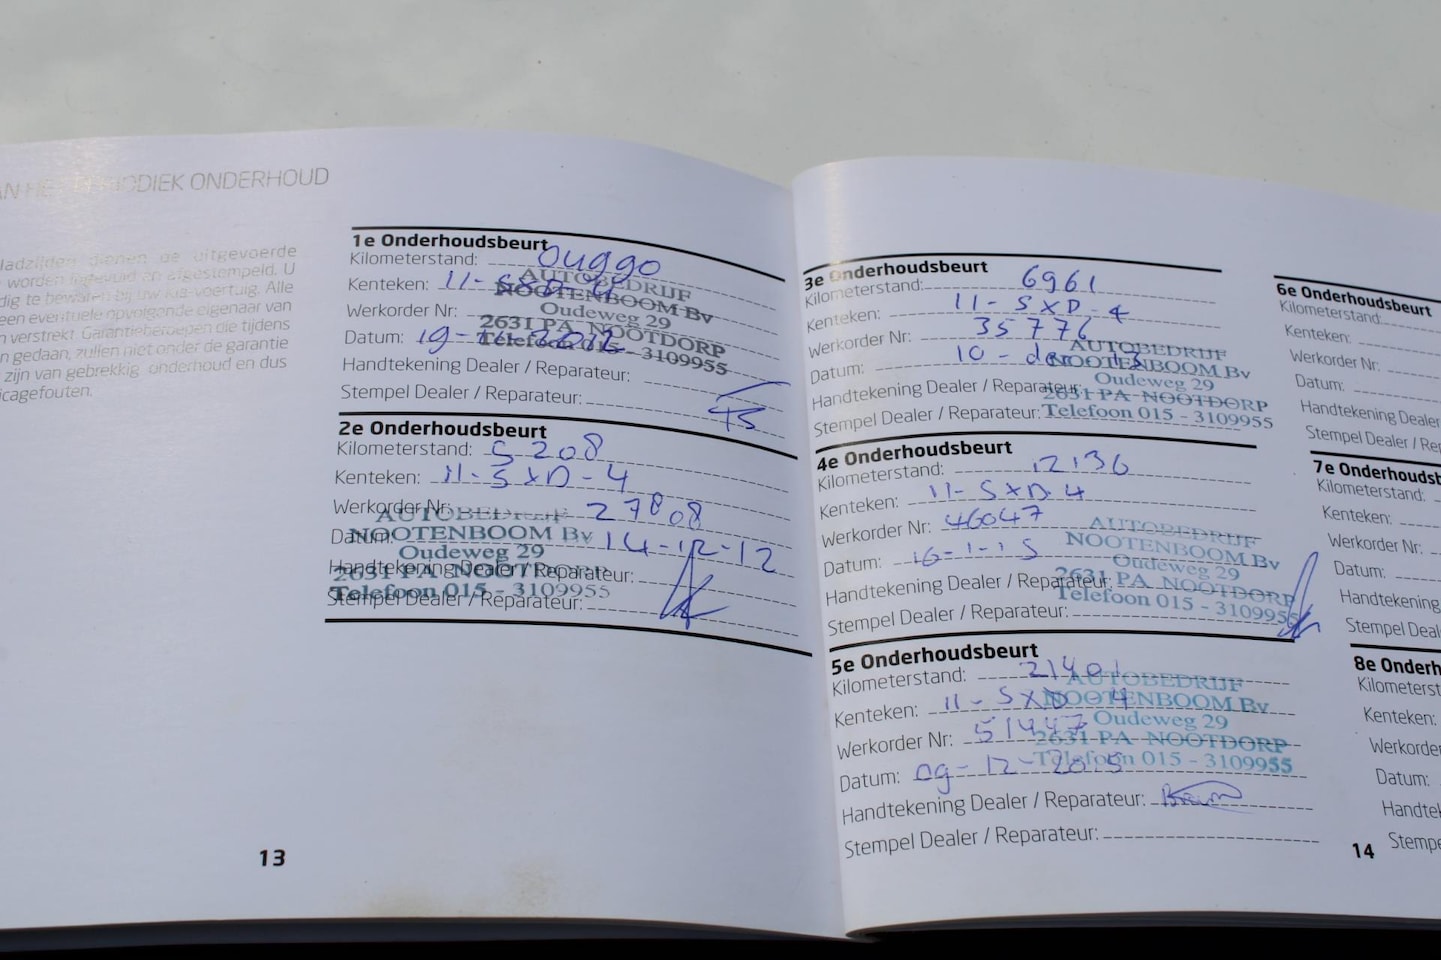 PERIODIEK ONDERHOUD
dienen de uitgevoerde
worden ingevuld en afgestempeld. U
te bewaren bij uw Kia-voertuig. Alle
een eventuele opvolgende eigenaar van
verstrekt. Garantieberoepen die tijdens
gedaan, zullen niet onder de garantie
zijn van gebrekkig onderhoud en dus
1e Onderhoudsbeurt
Kilometerstand:
Kenteken: 11-SXD-4
Werkorder Nr:
Datum:
Handtekening Dealer / Reparateur:
Stempel Dealer / Reparateur:
AUTOBEDRIJF
NOOTENBOOM Bv
Oudeweg 29
2631 PA NOOTDORP
Telefoon 015 - 3109955
2e Onderhoudsbeurt
Kilometerstand: 5208
Kenteken: 11-SXD-4
Werkorder Nr: 27808
Datum: 14-12-12
Handtekening Dealer / Reparateur:
Stempel Dealer / Reparateur:
AUTOBEDRIJF
NOOTENBOOM Bv
Oudeweg 29
2631 PA NOOTDORP
Telefoon 015 - 3109955
13
3e Onderhoudsbeurt
Kilometerstand: 6961
Kenteken: 11-SXD-4
Werkorder Nr: 35776
Datum: 10-dec-13
Handtekening Dealer / Reparateur:
Stempel Dealer / Reparateur:
AUTOBEDRIJF
NOOTENBOOM Bv
Oudeweg 29
2631 PA NOOTDORP
Telefoon 015 - 3109955
4e Onderhoudsbeurt
Kilometerstand: 12136
Kenteken: 11-SXD-4
Werkorder Nr: 46047
Datum: 16-1-15
Handtekening Dealer / Reparateur:
Stempel Dealer / Reparateur:
AUTOBEDRIJF
NOOTENBOOM Bv
Oudeweg 29
2631 PA NOOTDORP
Telefoon 015 - 3109955
5e Onderhoudsbeurt
Kilometerstand: 21401
Kenteken: 11-SXD-4
Werkorder Nr: 51447
Datum: 09-12-2015
Handtekening Dealer / Reparateur:
Stempel Dealer / Reparateur:
AUTOBEDRIJF
NOOTENBOOM Bv
Oudeweg 29
2631 PA NOOTDORP
Telefoon 015 - 3109955
6e Onderhoudsbeurt
Kilometerstand:
Kenteken:
Werkorder Nr:
Datum:
Handtekening Dealer
Stempel Dealer / R
7e Onderhoudsb
Kilometerstand:
Kenteken:
Werkorder Nr:
Datum:
Handtekening
Stempel Deal
8e Onderh
Kilometerst
Kenteken:
Werkorde
Datum:
Handtek
Stempe
14